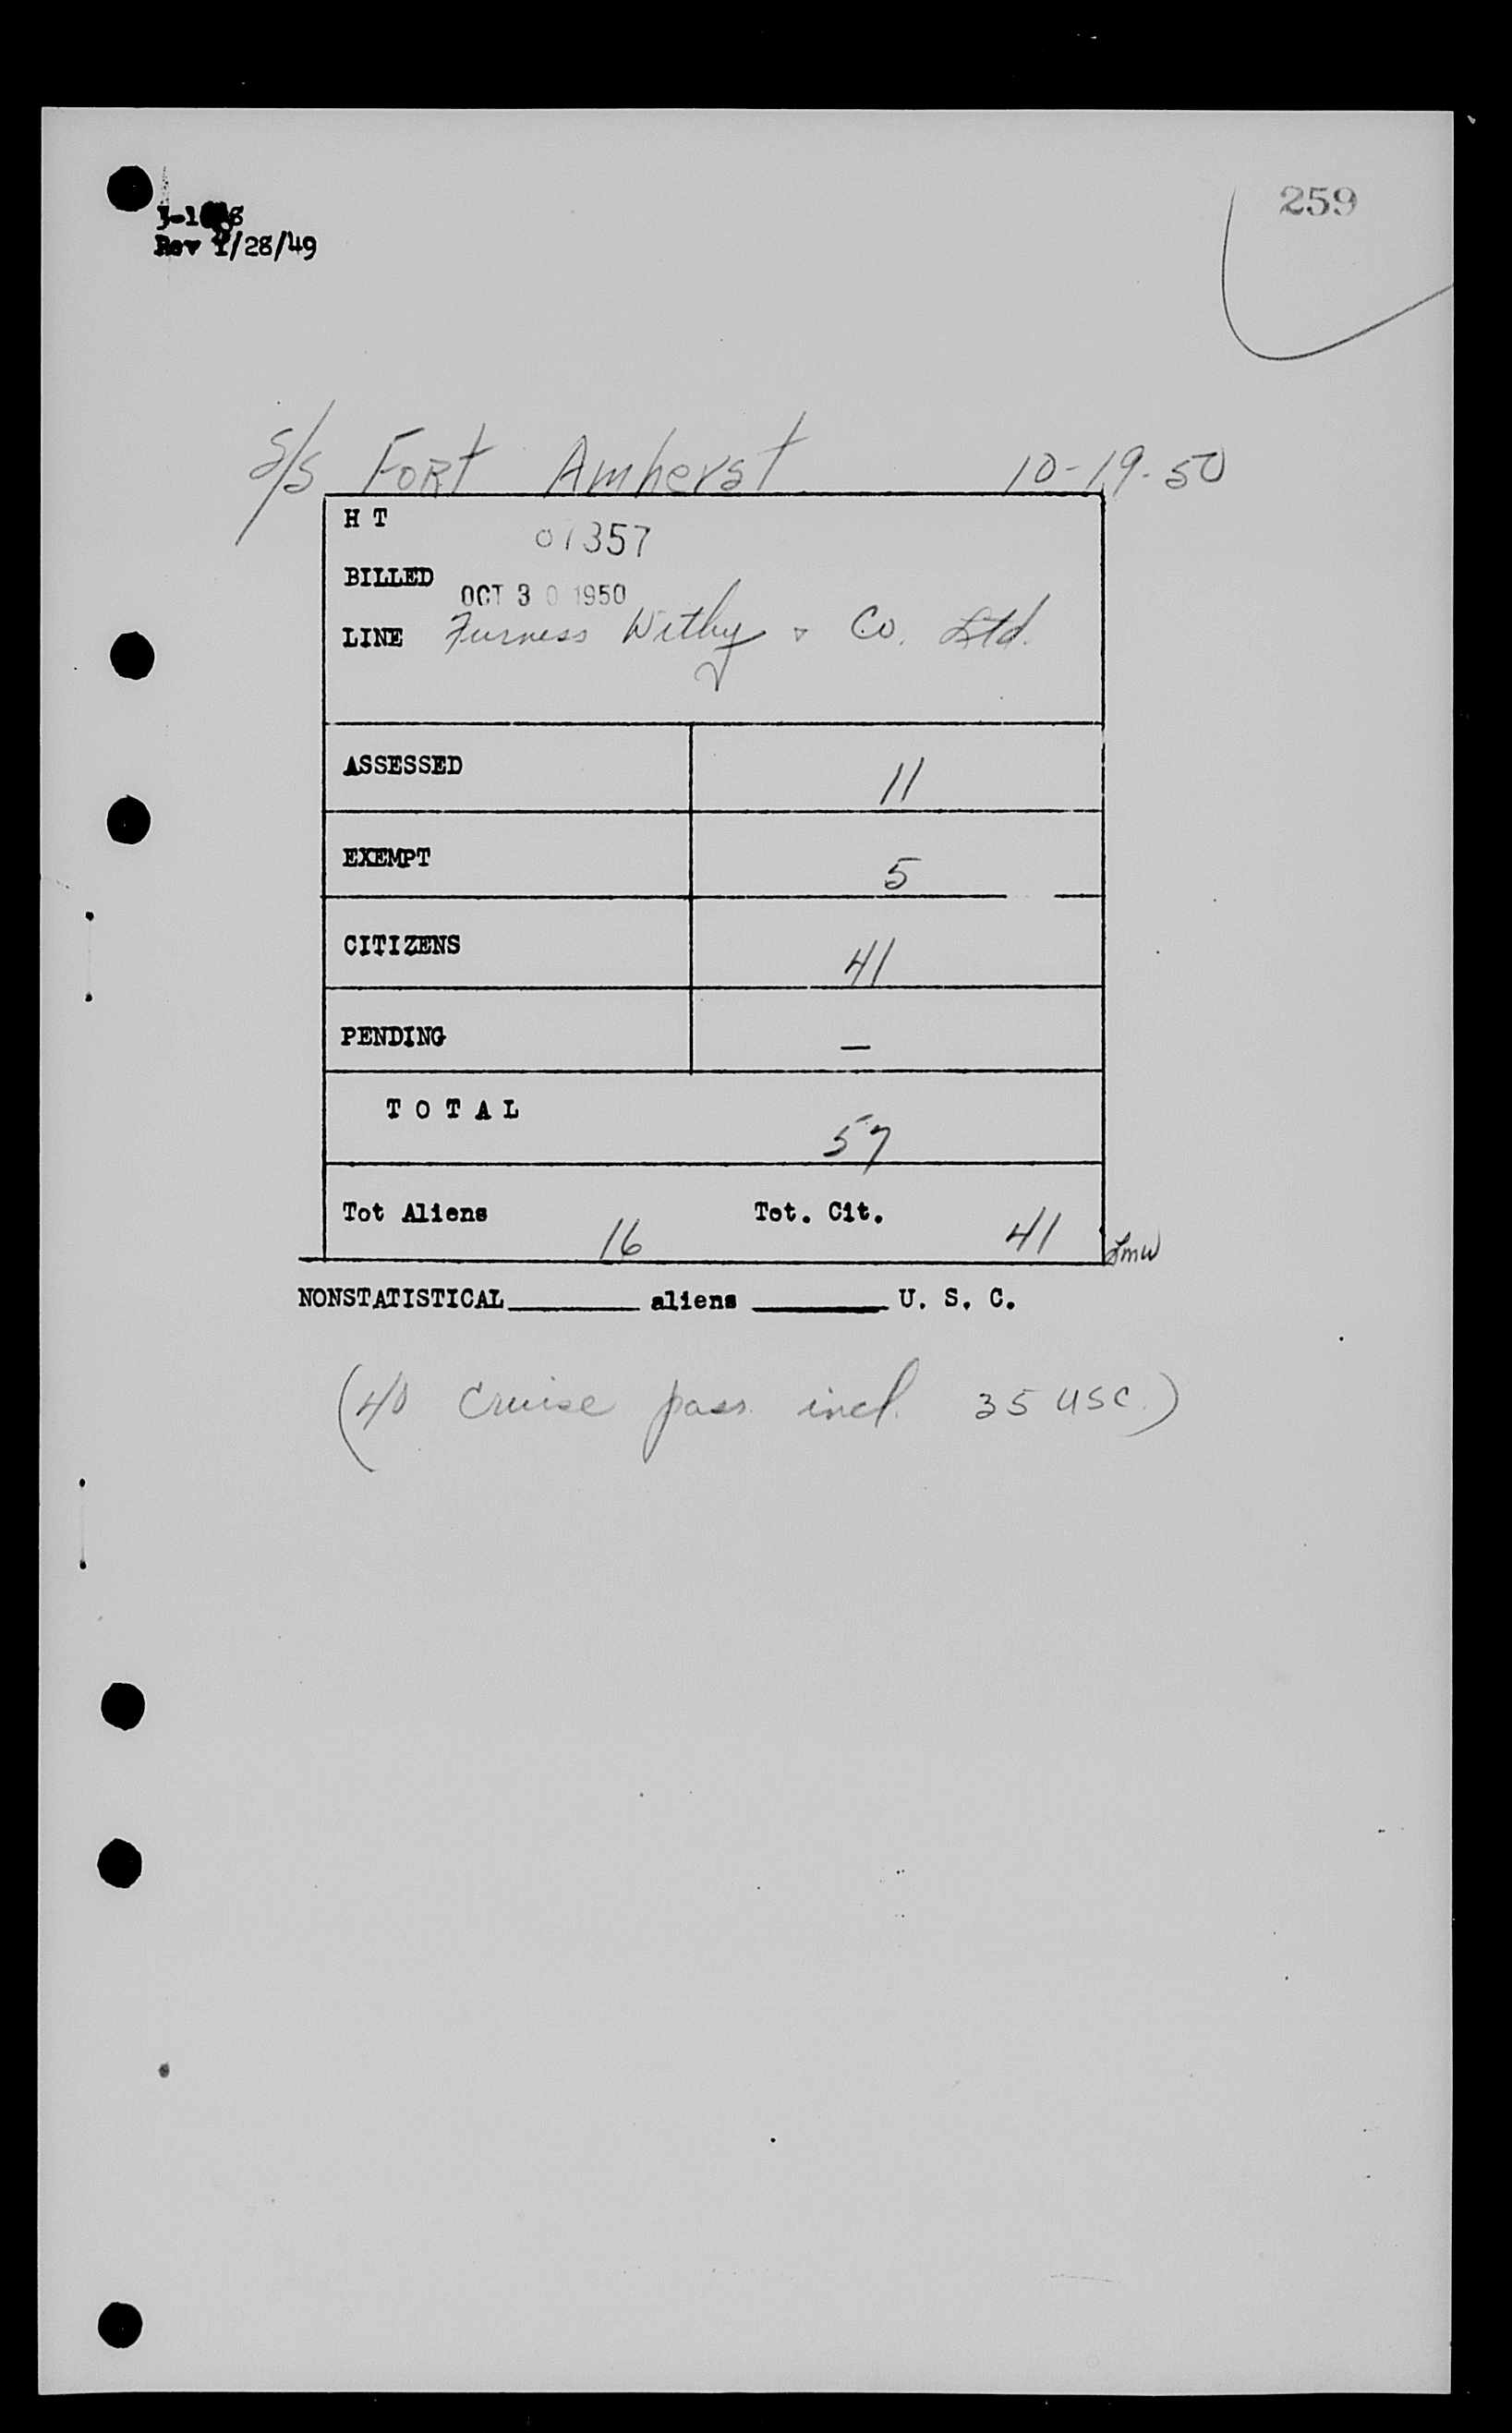 259
Rev 1/28/49
S/S Fort Amherst 10-19-50
H T 01357
BILLED OCT 30 1950
LINE Furness Withy & Co. Ltd.
ASSESSED 11
EXEMPT 5
CITIZENS 41
PENDING —
TOTAL 57
Tot Aliens 16 Tot. Cit. 41 LMW
NONSTATISTICAL________ aliens ________ U. S. C.
(40 Cruise pass. incl. 35 USC.)